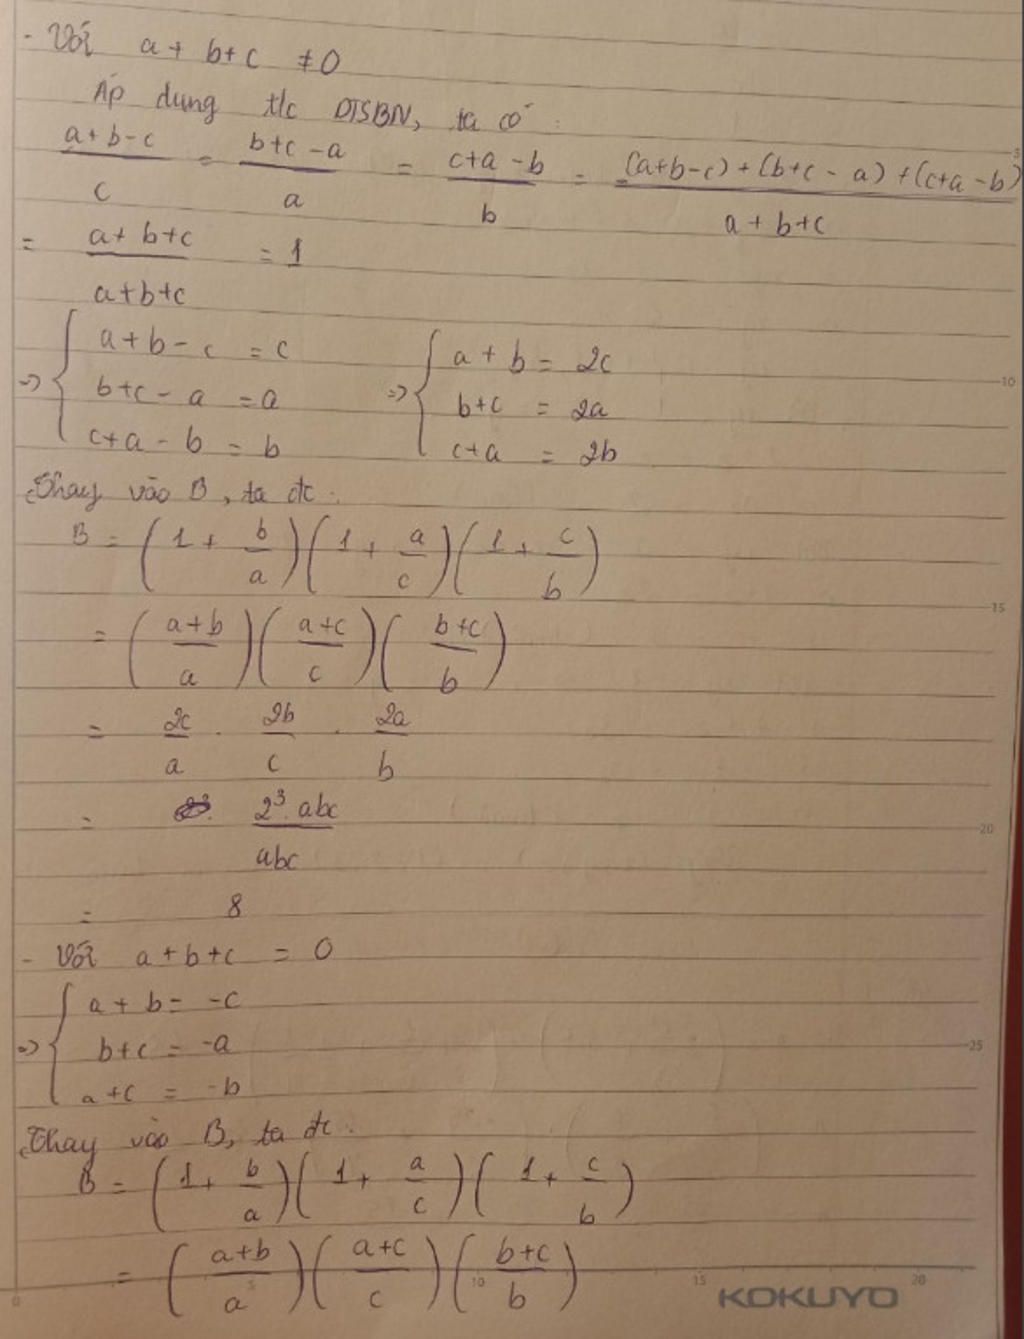 - Với a + b + c ≠ 0
Áp dụng t/c DTSBN, ta có :
(a + b - c)/c = (b + c - a)/a = (c + a - b)/b = ((a+b-c) + (b+c-a) + (c+a-b))/(a + b + c)
= (a + b + c)/(a + b + c) = 1
=> { a + b - c = c => { a + b = 2c
b + c - a = a b + c = 2a
c + a - b = b c + a = 2b
Thay vào B, ta đc :
B = (1 + b/a)(1 + a/c)(1 + c/b)
= ((a + b)/a)((a + c)/c)((b + c)/b)
= 2c/a . 2b/c . 2a/b
= (2³. abc)/abc
= 8
- Với a + b + c = 0
=> { a + b = -c
b + c = -a
a + c = -b
Thay vào B, ta đc :
B = (1 + b/a)(1 + a/c)(1 + c/b)
= ((a + b)/a)((a + c)/c)((b + c)/b)
5
10
15
20
25
0 5 10 15 20
KOKUYO